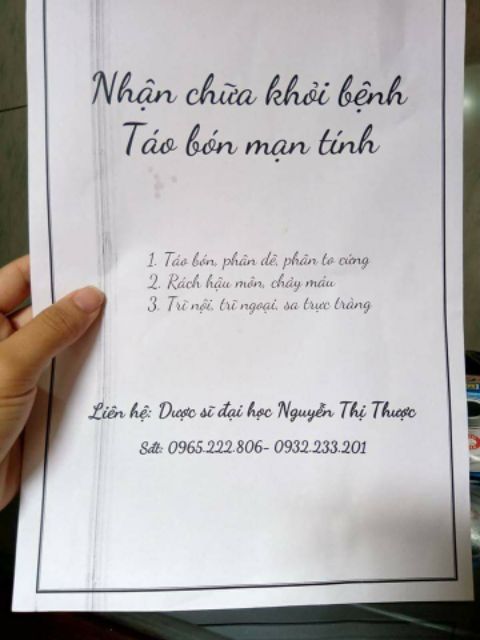 Nhận chữa khỏi bệnh
Táo bón mạn tính
1. Táo bón, phân dê, phân to cứng
2. Rách hậu môn, chảy máu
3. Trĩ nội, trĩ ngoại, sa trực tràng
Liên hệ: Dược sĩ đại học Nguyễn Thị Thược
Sđt: 0965.222.806- 0932.233.201